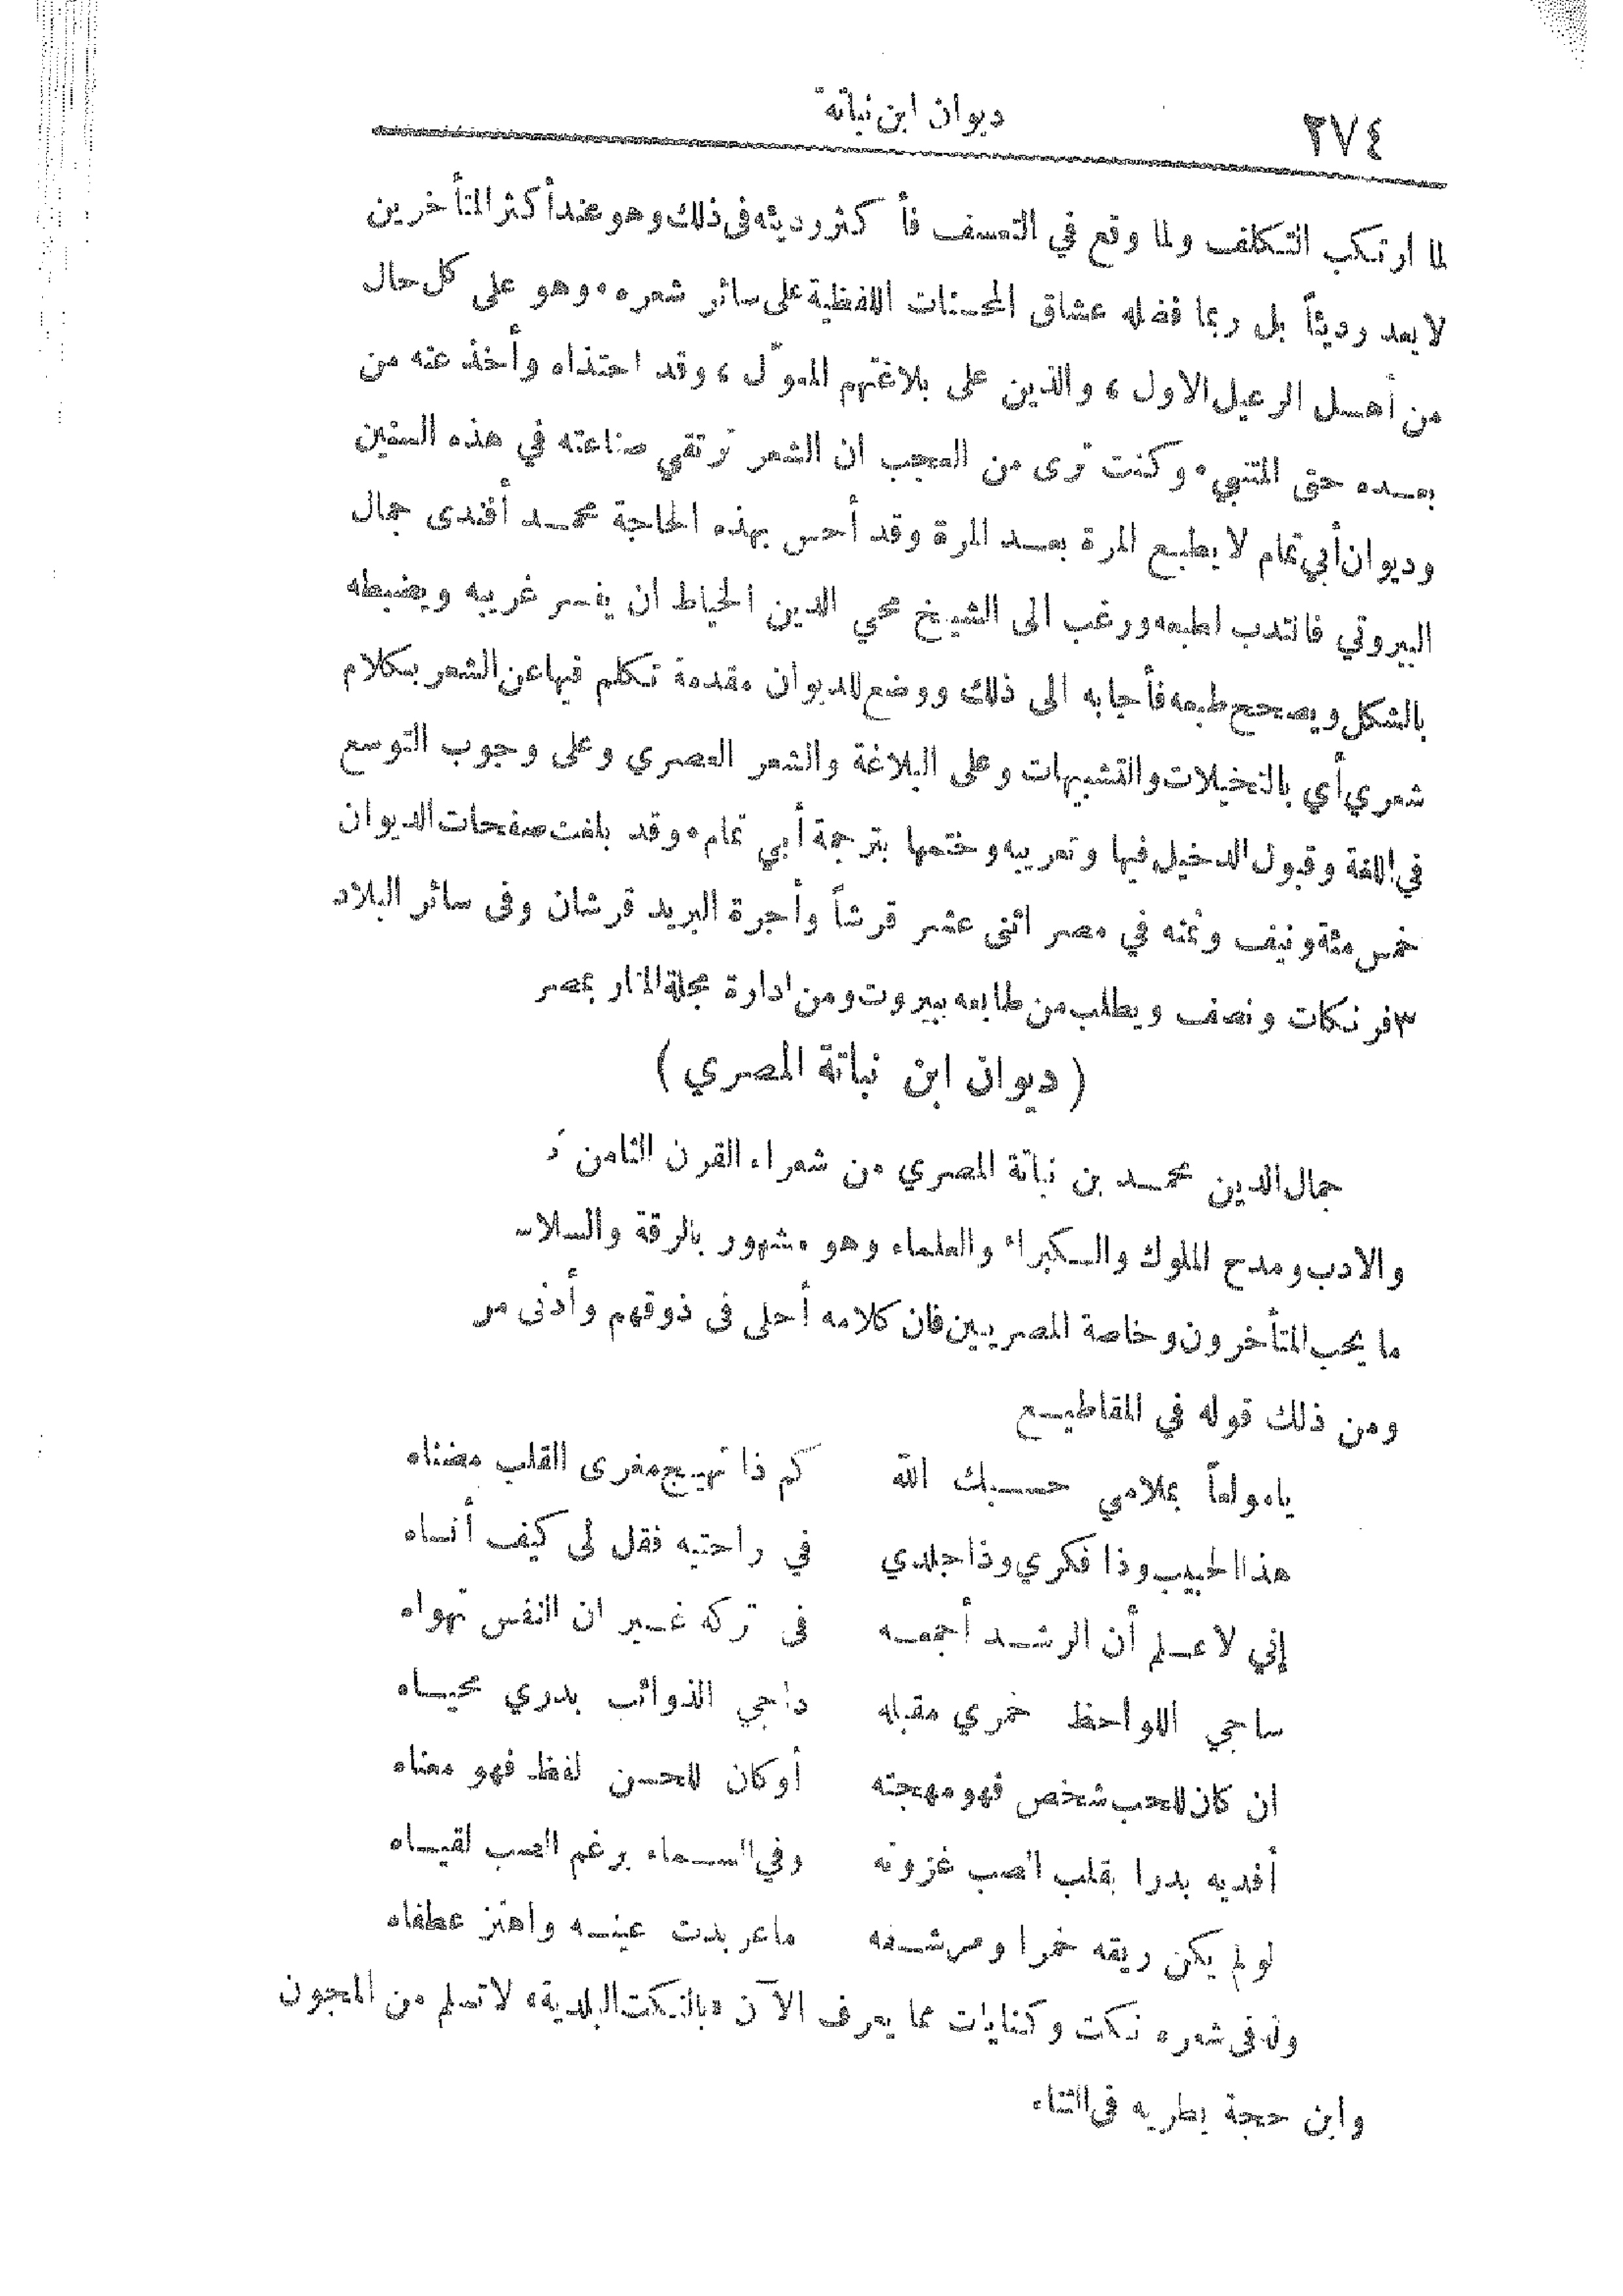 ٢٧٤
ديوان ابن نباتة
لما ارتكب التكلف ولما وقع في التعسف فأكثر رديئه في ذلك وهو عند أكثر المتأخرين
لا يعد رديئاً بل ربما فضله عشاق المحسنات اللفظية على سائر شعره ۰ وهو على كل حال
من أهل الرعيل الاول ، والذين على بلاغتهم المعوّل ، وقد احتذاه وأخذ عنه من
بعده حتى المتنبي ۰ وكنت ترى من العجب ان الشعر ترتقي صناعته في هذه السنين
وديوان أبي تمام لا يطبع المرة بعد المرة وقد أحس بهذه الحاجة محمد أفندى جمال
البيروتي فانتدب لطبعه ورغب الى الشيخ محي الدين الخياط ان يفسر غريبه ويضبطه
بالشكل ويصحح طبعه فأجابه الى ذلك ووضع للديوان مقدمة تكلم فيها عن الشعر بكلام
شعري أي بالتخيلات والتشبيهات وعلى البلاغة والشعر العصري وعلى وجوب التوسع
في اللغة وقبول الدخيل فيها وتعريبه وختمها بترجمة أبي تمام ۰ وقد بلغت صفحات الديوان
خمس مئة ونيف وثمنه في مصر اثنى عشر قرشاً وأجرة البريد قرشان وفى سائر البلاد
٣ فرنكات ونصف ويطلب من طابعه ببيروت ومن ادارة مجلة المنار بمصر
( ديوان ابن نباتة المصري )
جمال الدين محمد بن نباتة المصري من شعراء القرن الثامن
والادب ومدح الملوك والكبراء والعلماء وهو مشهور بالرقة
ما يحب المتأخرون وخاصة المصريين فان كلامه أحلى فى ذوقهم وأدنى
ومن ذلك قوله في المقاطيع
يا مولعاً بملامي حسبك الله كم ذا تهيج مغرى القلب مضناه
هذا الحبيب وذا فكري وذا جلدي في راحتيه فقل لى كيف أنساه
إني لاعلم أن الرشد أجمعه فى تركه غير ان النفس تهواه
ساجي اللواحظ خمري مقبله داجي الذوائب بدري محياه
ان كان للحب شخص فهو مهجته أو كان للحسن لفظ فهو معناه
أفديه بدرا بقلب الصب غزوته وفي السماء برغم الصب لقياه
لو لم يكن ريقه خمرا ومرشفه ما عربدت عينه واهتز عطفاه
وله فى شعره نكت وكنايات مما يعرف الآن «بالنكت البلدية» لا تسلم من المجون
وابن حجة يطريه فى الثناء